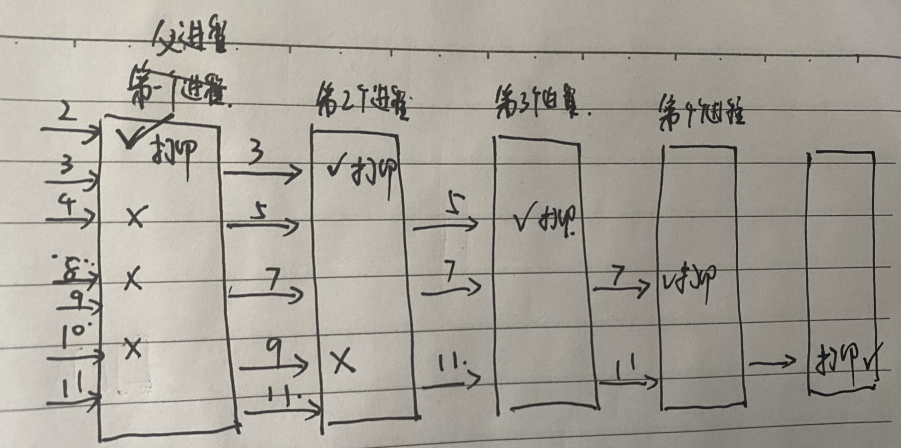 父进程
第一个进程 第2个进程 第3个进程 第4个进程
2
✓打印 3 ✓打印
3
4 × 5 5 ✓打印
8 × 7 7 7 ✓打印
9
10 × 9 × 11 11 打印✓
11 11